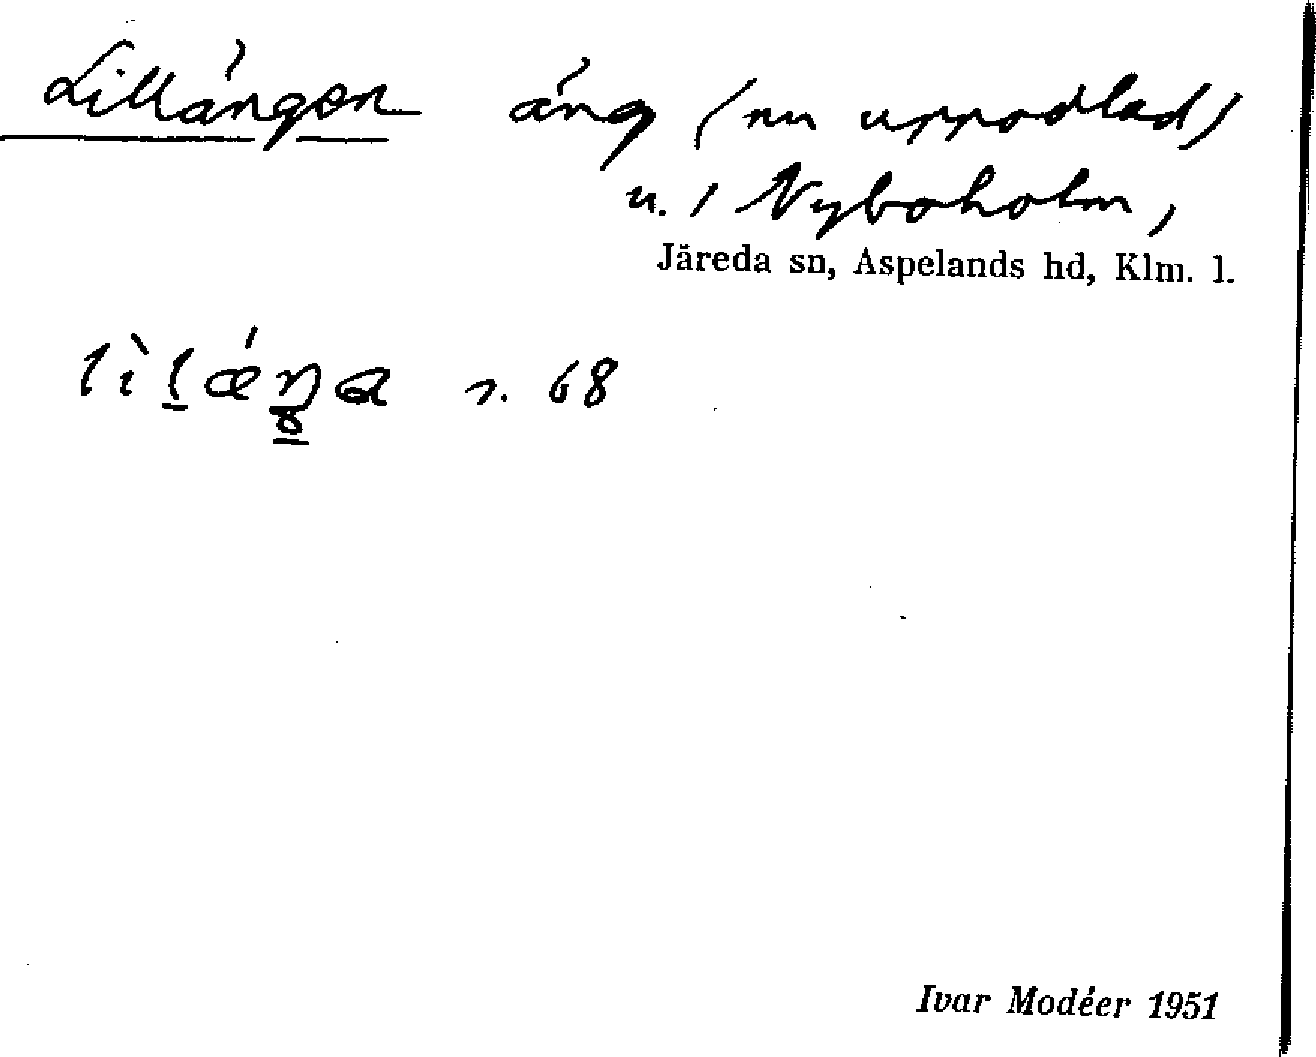 Lillängen äng (nu uppodlad)
u. / Nyboholm,
Järeda sn, Aspelands hd, Klm. l.
s. 68
Ivar Modéer 1951